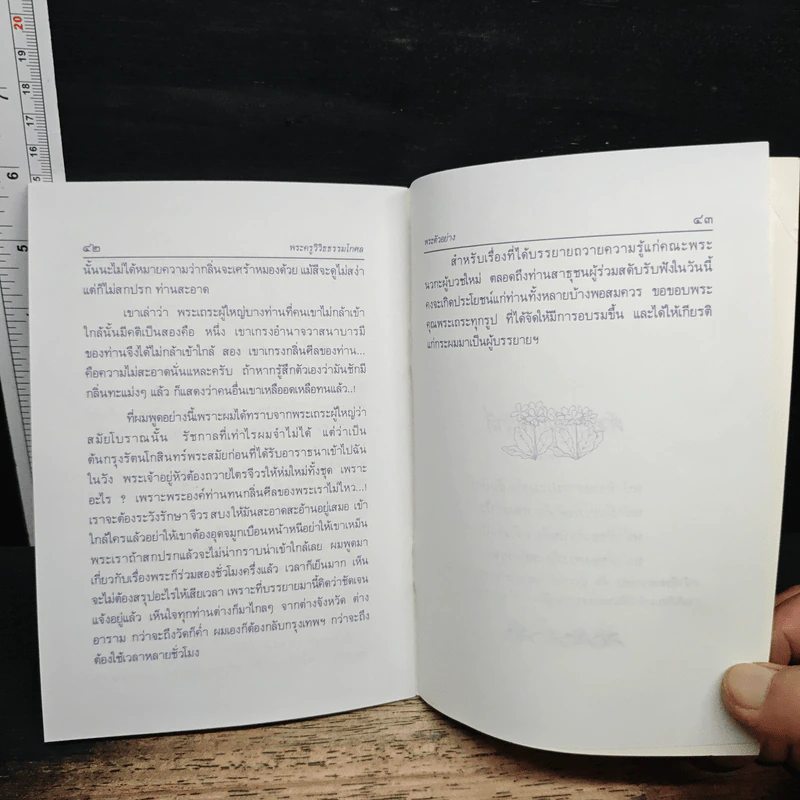 20
19
18
17
16
7
6
5
๔๒ พระครูวิวิธธรรมโกศล
นั้นนะไม่ได้หมายความว่ากลิ่นจะเศร้าหมองด้วย แม้สีจะดูไม่สง่า
แต่ก็ไม่สกปรก ท่านสะอาด
เขาเล่าว่า พระเถระผู้ใหญ่บางท่านที่คนเขาไม่กล้าเข้า
ใกล้นั้นมีคติเป็นสองคือ หนึ่ง เขาเกรงอำนาจวาสนาบารมี
ของท่านจึงได้ไม่กล้าเข้าใกล้ สอง เขาเกรงกลิ่นศีลของท่าน...
คือความไม่สะอาดนั่นแหละครับ ถ้าหากรู้สึกตัวเองว่ามันชักมี
กลิ่นทะแม่งๆ แล้ว ก็แสดงว่าคนอื่นเขาเหลืออดเหลือทนแล้ว..!
ที่ผมพูดอย่างนี้เพราะผมได้ทราบจากพระเถระผู้ใหญ่ว่า
สมัยโบราณนั้น รัชกาลที่เท่าไรผมจำไม่ได้ แต่ว่าเป็น
ต้นกรุงรัตนโกสินทร์พระสมัยก่อนที่ได้รับอาราธนาเข้าไปฉัน
ในวัง พระเจ้าอยู่หัวต้องถวายไตรจีวรให้ห่มใหม่ทั้งชุด เพราะ
อะไร ? เพราะพระองค์ท่านทนกลิ่นศีลของพระเราไม่ไหว...!
เราจะต้องระวังรักษาจีวรสบงให้มันสะอาดสะอ้านอยู่เสมอ เข้า
ใกล้ใครแล้วอย่าให้เขาต้องอุดจมูกเบือนหน้าหนีอย่าให้เขาเหม็น
พระเราถ้าสกปรกแล้วจะไม่น่ากราบน่าเข้าใกล้เลย ผมพูดมา
เกี่ยวกับเรื่องพระก็ร่วมสองชั่วโมงครึ่งแล้ว เวลาก็เย็นมาก เห็น
จะไม่ต้องสรุปอะไรให้เสียเวลา เพราะที่บรรยายมานี้คิดว่าชัดเจน
แจ้งอยู่แล้ว เห็นใจทุกท่านต่างก็มาไกลๆ จากต่างจังหวัด ต่าง
อาราม กว่าจะถึงวัดก็ค่ำ ผมเองก็ต้องกลับกรุงเทพฯ กว่าจะถึง
ต้องใช้เวลาหลายชั่วโมง
พระตัวอย่าง ๔๓
สำหรับเรื่องที่ได้บรรยายถวายความรู้แก่คณะพระ
นวกะผู้บวชใหม่ ตลอดถึงท่านสาธุชนผู้ร่วมสดับรับฟังในวันนี้
คงจะเกิดประโยชน์แก่ท่านทั้งหลายบ้างพอสมควร ขอขอบพระ
คุณพระเถระทุกรูป ที่ได้จัดให้มีการอบรมขึ้น และได้ให้เกียรติ
แก่กระผมมาเป็นผู้บรรยายฯ